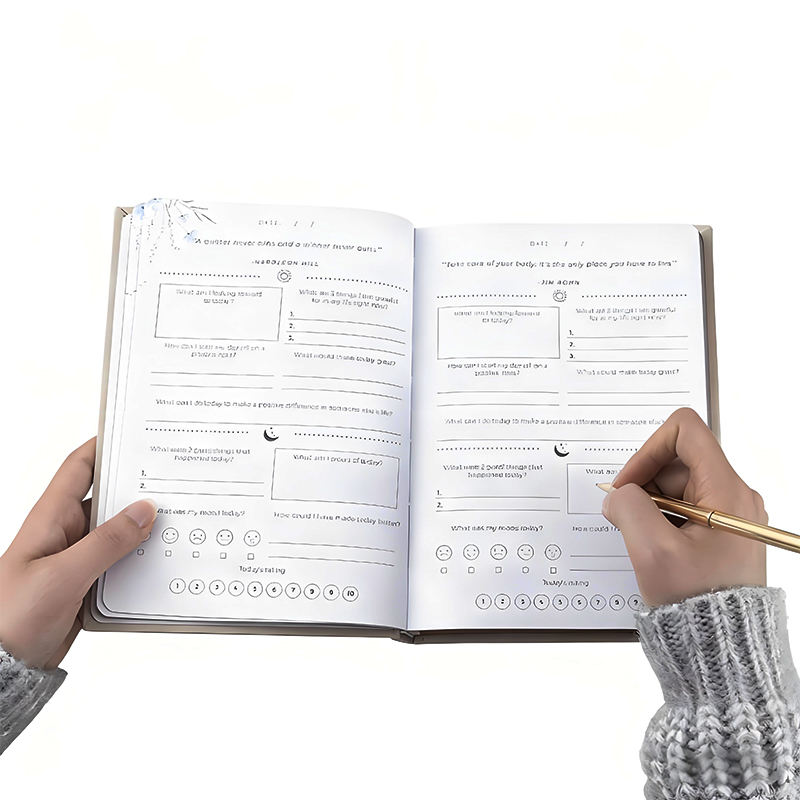 DATE / /
"A quitter never wins and a winner never quits"
What am I looking forward
to today?
What are 3 things I am grateful
for in my life right now?
1.
2.
3.
How can I start my day off on a
positive note?
What would make today great?
What can I do today to make a positive difference in someone else's life?
What were 2 good things that
happened today?
1.
2.
What am I proud of today?
What was my mood today?
How could I have made today better?
Today's rating
1 2 3 4 5 6 7 8 9 10
DATE / /
"Take care of your body, it's the only place you have to live"
-JIM ROHN
What am I looking forward
to today?
What are 3 things I am grateful
for in my life right now?
1.
2.
3.
How can I start my day off on a
positive note?
What would make today great?
What can I do today to make a positive difference in someone else's
What were 2 good things that
happened today?
1.
2.
What am
What was my mood today?
How could I
Today's rating
1 2 3 4 5 6 7 8 9